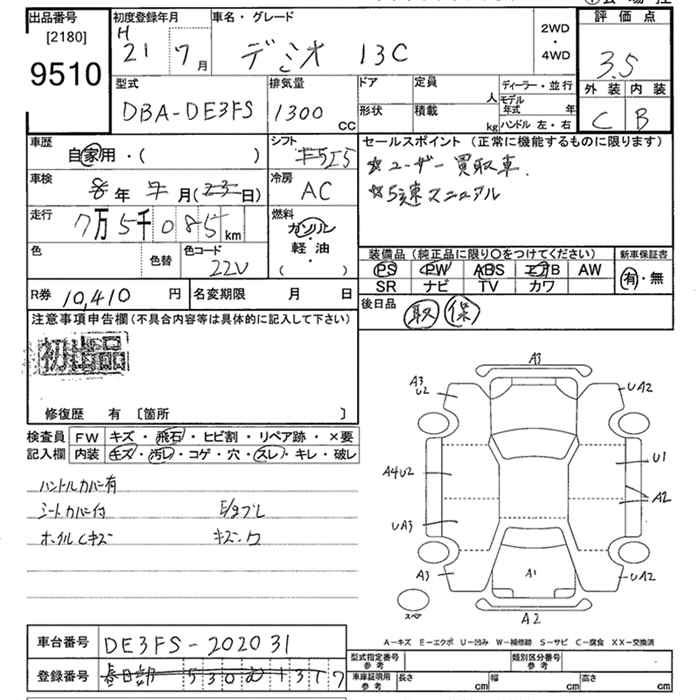 出品番号 初度登録年月 車名・グレード 評価点
[2180] H 2WD
9510 21 7月 デミオ 13C ・ 3.5
4WD
型式 排気量 ドア 定員 人 ディーラー・並行 外装 内装
DBA-DE3FS 1300 cc 形状 積載 kg モデル年式 年 C B
ハンドル 左・右
車歴 シフト セールスポイント (正常に機能するものに限ります)
自家用・( ) F5I5 ☆ユーザー買取車.
車検 冷房 ☆5速マニュアル
年 月( 日) AC
走行 燃料
7万5千085km ガソリン
・
色 色替 色コード 軽油 装備品 (純正品に限り〇をつけてください) 新車保証書
22V ( ) PS PW ABS エアB AW 有・無
SR ナビ TV カワ
R券 10,410 円 名変期限 月 日 後日品 取 保
注意事項申告欄(不具合内容等は具体的に記入して下さい)
初出品
修復歴 有 [箇所 ]
検査員 FW キズ・飛石・ヒビ割・リペア跡・×要
記入欄 内装 キズ・汚レ・コゲ・穴・スレ・キレ・破レ
ハンドルカバー有
シートカバー付
ホイルCキズ キズ・ワ
A3
A3 U2 UA2
A4U2 U1
A2
UA3
A3 A1 UA2
スペア A2
A-キズ E-エクボ U-凹み W-補修跡 S-サビ C-腐食 XX-交換済
車台番号 DE3FS-202031 型式指定番号 参考 類別区分番号 参考
登録番号 春日部 530 1317 車庫証明用 参考 長さ cm 幅 cm 高さ cm